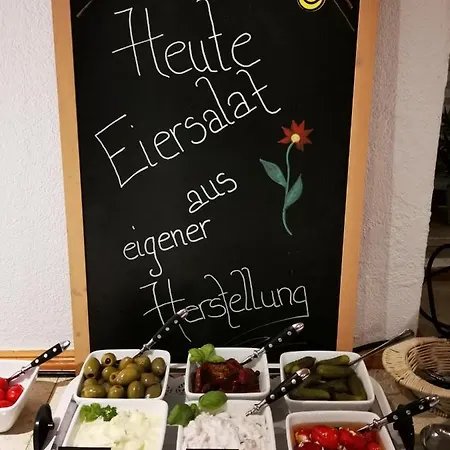 Heute
Eiersalat
aus
eigener
Herstellung